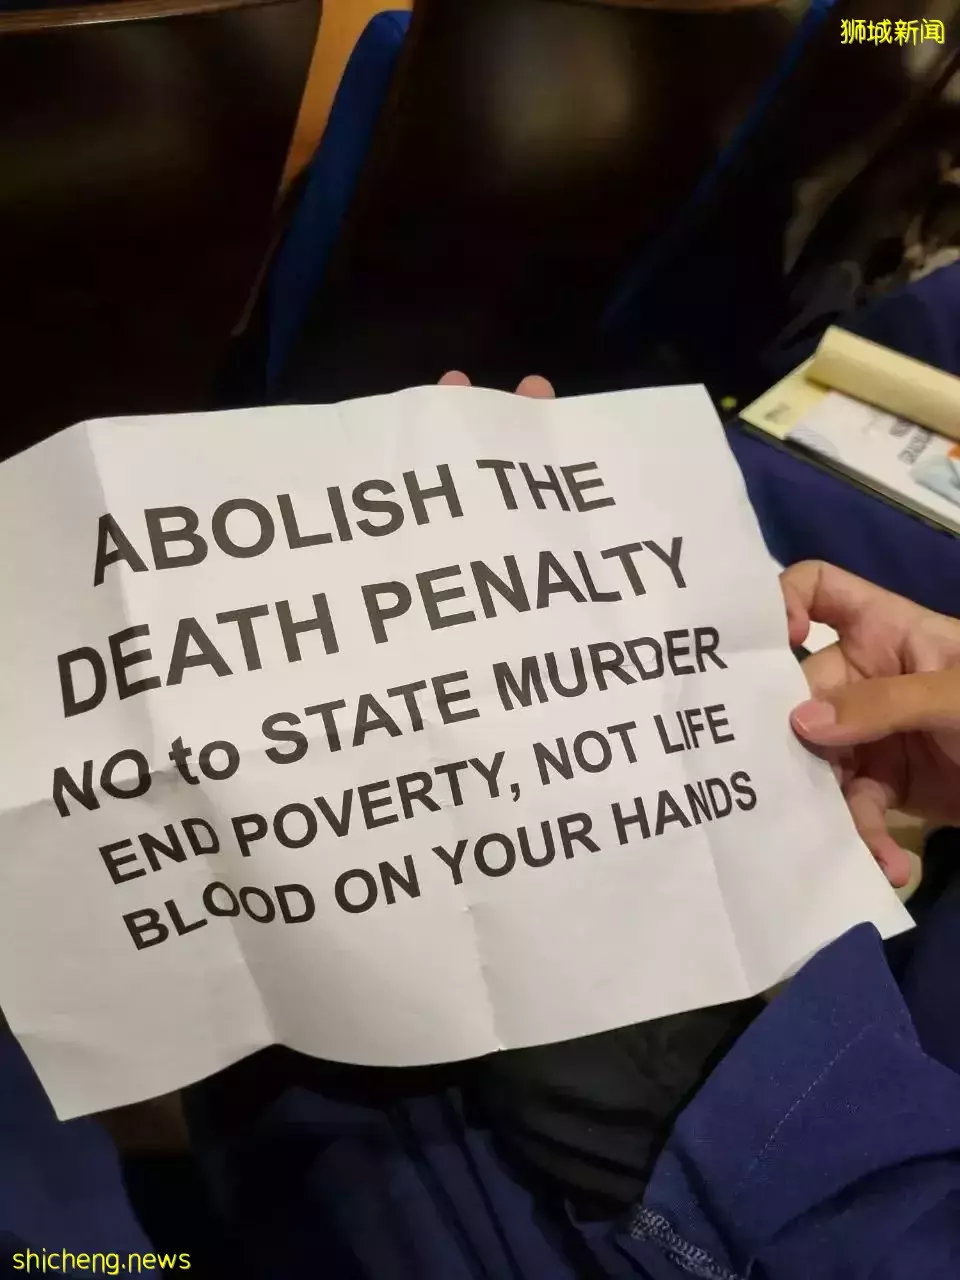 狮城新闻
ABOLISH THE
DEATH PENALTY
NO to STATE MURDER
END POVERTY, NOT LIFE
BLOOD ON YOUR HANDS
shicheng.news